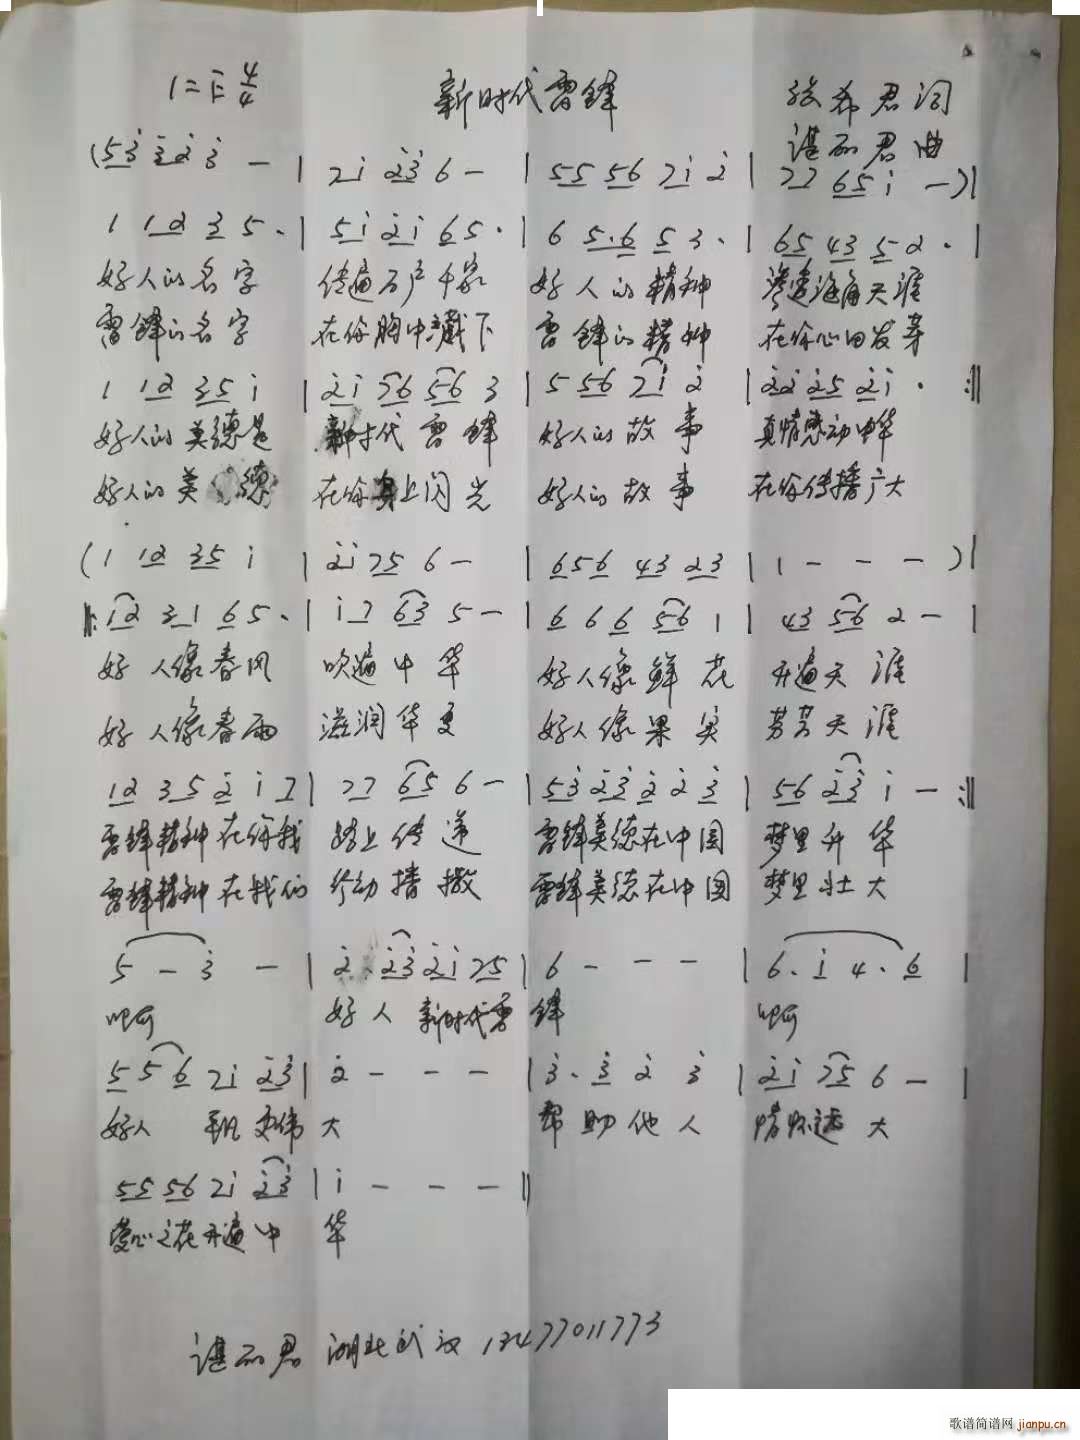 1=F 4/4 新时代雷锋 张希君词
谌丽君曲
(5 3 3 2 3 — | 2 1 2 3 6 — | 5 5 5 6 2 1 2 | 7 7 6 5 1 —)|
1 1 2 3 5 · | 5 1 2 1 6 5 · | 6 5 · 6 5 3 · | 6 5 4 3 5 2 · |
好人的名字 传遍万户千家 好人的精神 渗透海角天涯
雷锋的名字 在你胸中藏下 雷锋的精神 在你心田发芽
1 1 2 3 5 1 | 2 1 7 6 5 6 3 | 5 5 6 7 1 2 | 2 2 2 5 2 1 · :||
好人的美德是 新时代雷锋 好人的故事 真情感动中华
好人的美德 在你身上闪光 好人的故事 在你传播广大
(1 1 2 3 5 1 | 2 1 7 5 6 — | 6 5 6 4 3 2 3 | 1 — — —)|
||: 1 2 3 1 6 5 · | 1 7 6 3 5 — | 6 6 6 5 6 1 | 4 3 5 6 2 — |
好人像春风 吹遍中华 好人像鲜花 开遍天涯
好人像春雨 滋润华夏 好人像果实 芬芳天涯
1 2 3 5 2 1 7 | 7 7 6 5 6 — | 5 3 2 3 2 2 3 | 5 6 2 3 1 — :||
雷锋精神在你我 路上传递 雷锋美德在中国 梦里升华
雷锋精神在我们 行动播撒 雷锋美德在中国 梦里壮大
5 — 3 — | 2 · 2 3 2 1 7 5 | 6 — — — | 6 · 1 4 · 6 |
啊 好人 新时代雷锋 啊
5 5 6 2 1 2 3 | 2 — — — | 3 · 3 2 3 | 2 1 7 5 6 — |
好人 平凡又伟大 帮助他人 情怀远大
5 5 5 6 2 1 2 3 | 1 — — — ||
爱心之花开遍中华
谌丽君 湖北武汉 13477011773
歌谱简谱网 jianpu.cn